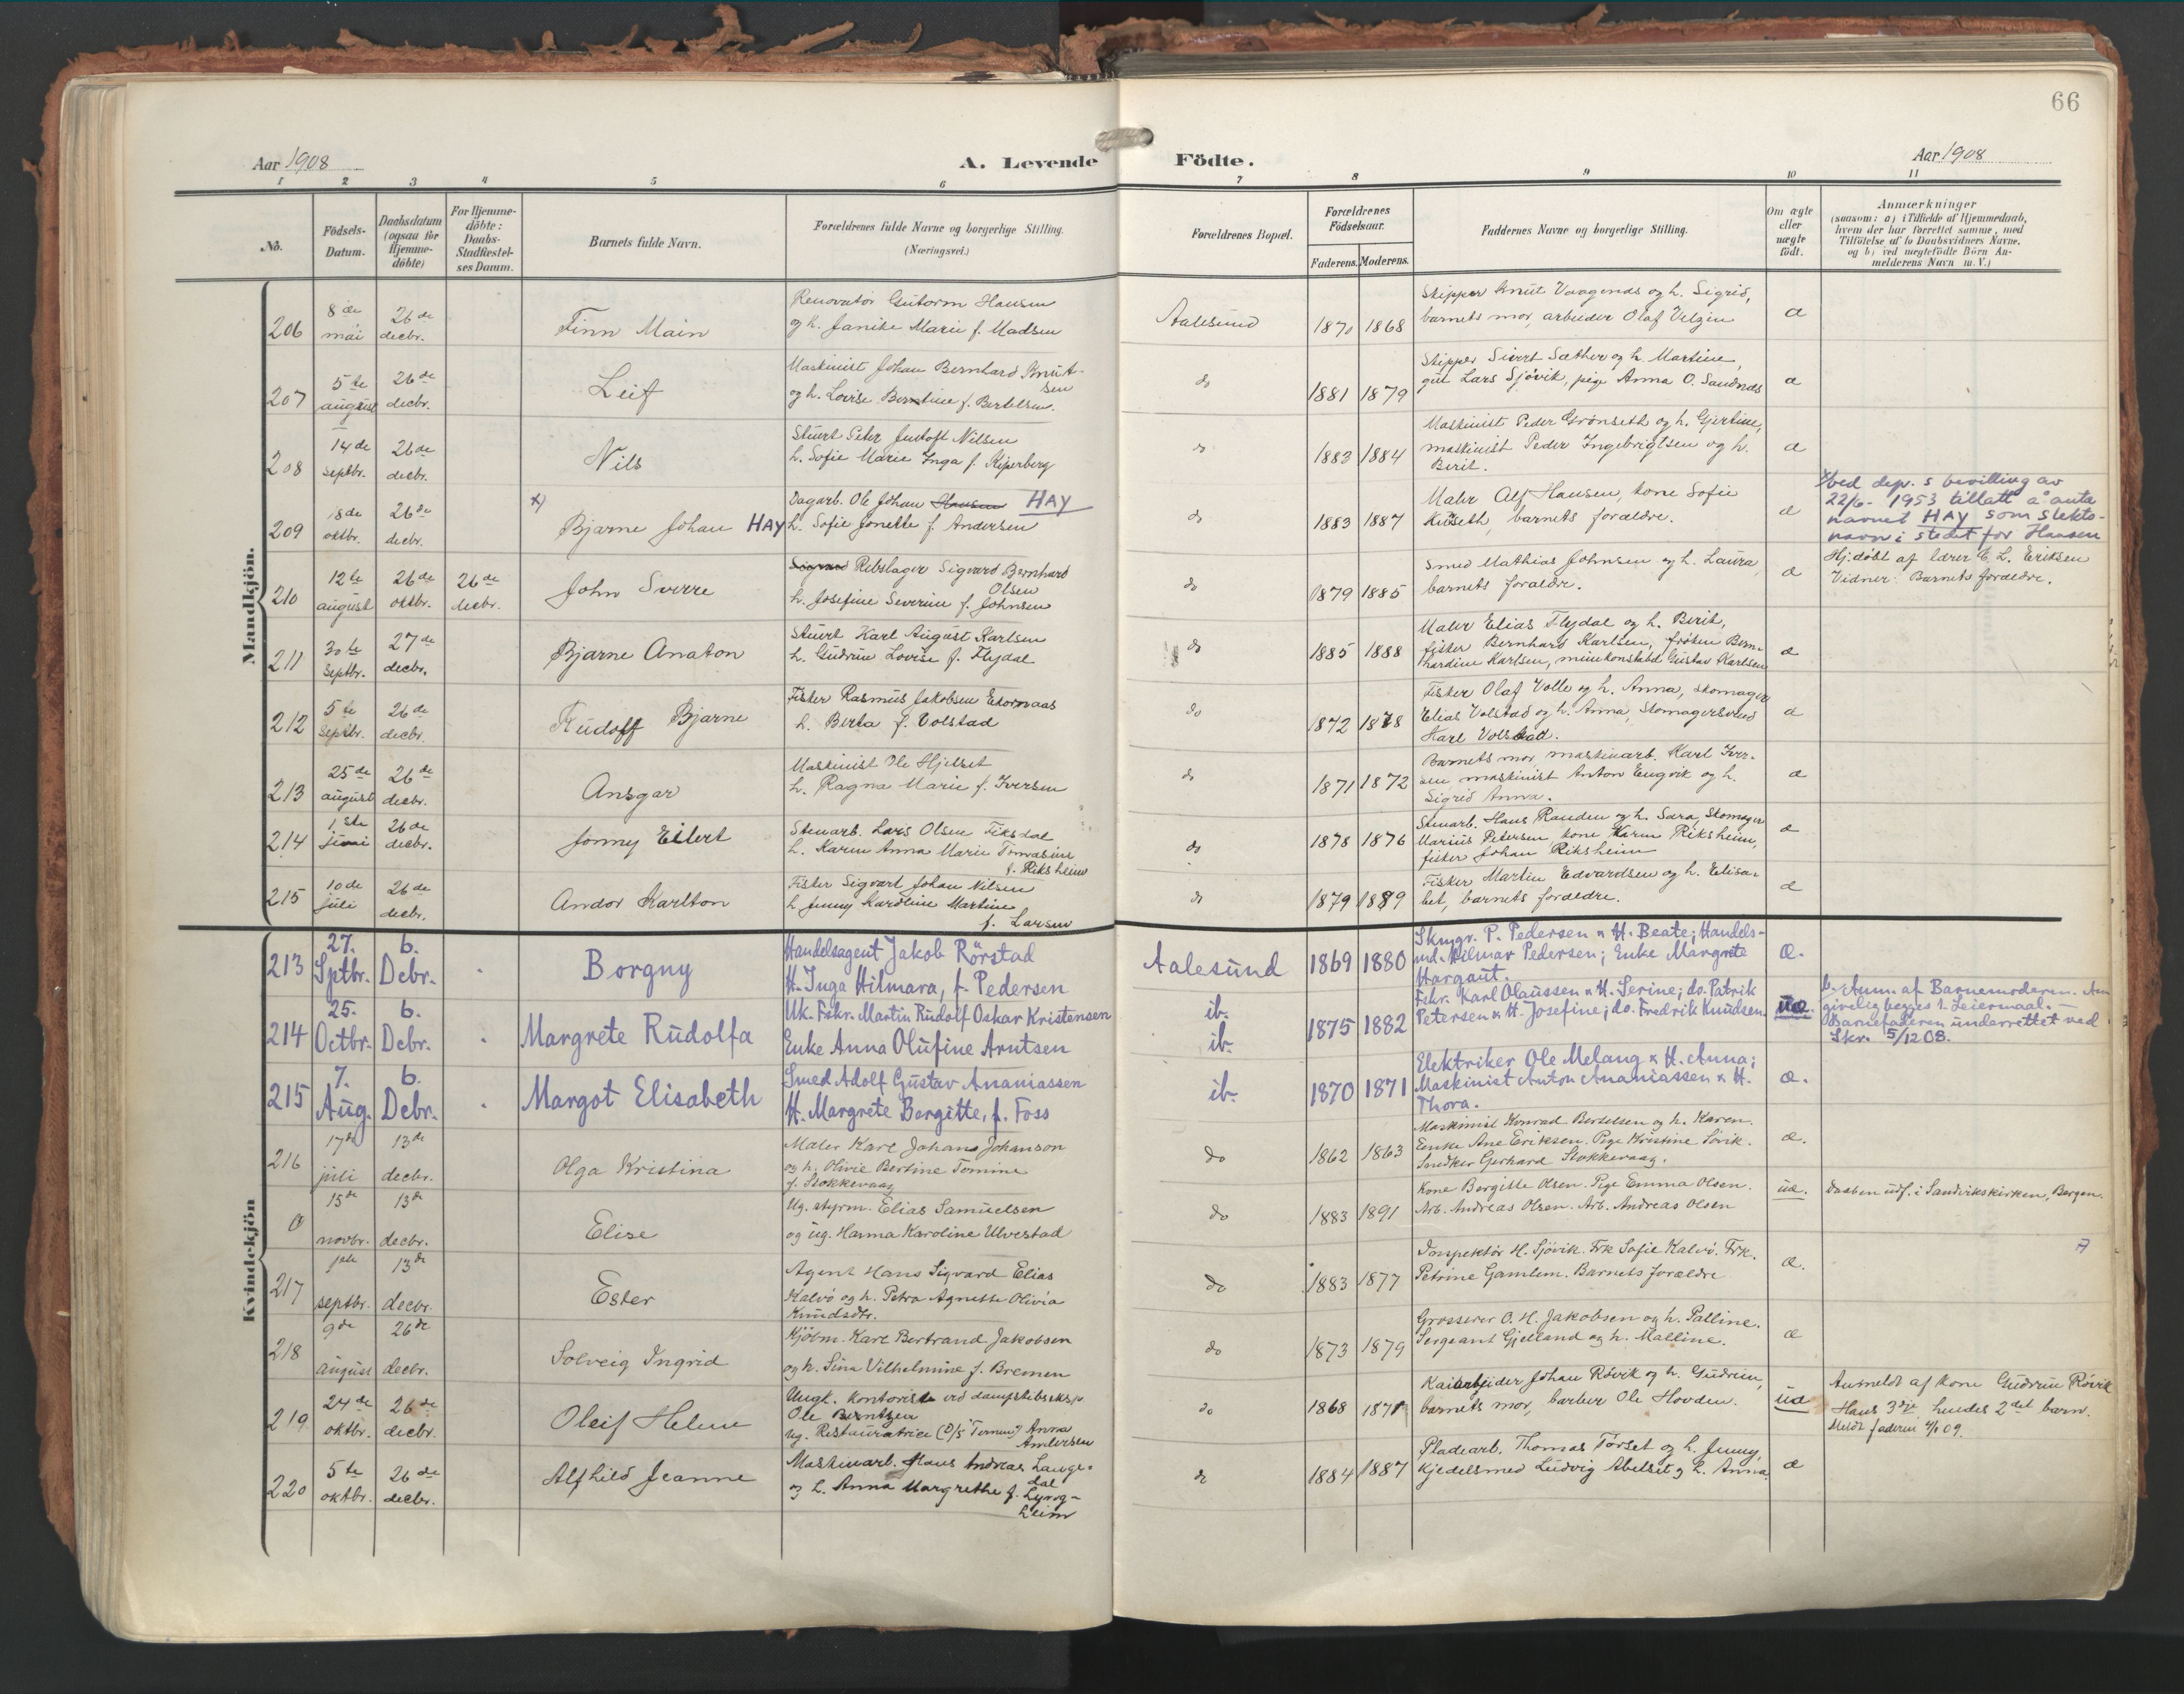 66
Aar 1908
A. Levende Födte.
Aar 1908
1 2 3 4 5 6 7 8 9 10 11
No.
Födsels-Datum.
Daabsdatum (ogsaa for Hjemme-döbte)
For Hjemme-döbte: Daabs-Stadfæstel-ses Datum.
Barnets fulde Navn.
Forældrenes fulde Navne og borgerlige Stilling. (Næringsvei.)
Forældrenes Bopæl.
Forældrenes Födselsaar.
Faderens. Moderens.
Faddernes Navne og borgerlige Stilling.
Om ægte eller uægte födt.
Anmærkninger
(saasom: a) i Tilfælde af Hjemmedaab,
hvem der har forrettet samme, med
Tilföielse af to Daabsvidners Navne.
og b) ved uægtefödte Börn An-
melderens Navn m. V.)
Mandkjön.
206 8de mai 26de decbr. Finn Main
Renovatör Gutorm Hansen
og h. Janike Marie f. Madsen
Aalesund 1870 1868
Skipper Knut Vaagenes og h. Sigrid,
barnets mor, arbeider Olaf
æ
207 5te august 26de decbr. Leif
Maskinist Johan Bernhard Knut-
sen
og h. Lovise Berntine f. Bertelsen.
do 1881 1879
Skipper Sivert Sæther og h. Martine,
gut Lars Sjövik, pige Anna O. Sandnes
æ
208 14de septbr. 26de decbr. Nils
Stuert Peter Nilsen
h. Sofie Marie Inga f. Kiperberg
do 1883 1884
Maskinist Peder Grönseth og h. Gjertine,
maskinist Peder Ingebrigtsen og h.
Berit.
æ
209 18de oktbr. 26de decbr. x) Bjarne Johan HAY
Dagarb. Ole Johan Hansen HAY
h. Sofie Jonette f. Andersen
do 1883 1887
Maler Alf Hansen, kone Sofie
barnets forældre.
æ
x) ved dep.s bevilling av
22/6- 1953 tillatt å anta
navnet HAY som slekts-
navn i stedet for Hansen
210 12te august 26de oktbr. 26de decbr. John Sverre
Sigvard Rebslager Sigvard Bernhard
Olsen
h. Josefine Severine f. Johnsen
do 1879 1885
Smed Mathias Johnsen og h. Laura,
barnets forældre.
æ
Hj.döbt af lærer E. L. Eriksen
Vidner: Barnets forældre.
211 30te septbr. 27de decbr. Bjarne Anaton
Stuert Karl August Karlsen
h. Gudrun Lovise f. Flydal
do 1885 1888
Maler Elias Flydal og h. Berit,
fisker Bernhard Karlsen, fröken Bern-
hardine Karlsen, minekonstabel Gustav Karlsen
æ
212 5te septbr. 26de decbr. Rudolf Bjarne
Fisker Rasmus Jakobsen Ekornaas
h. Berta f. Volstad
do 1872 1878
Fisker Olaf Volle og h. Anna, skomager
Elias Volstad og h. Anna, Skomagersvend
Karl Volstad.
æ
213 25de august 26de decbr. Ansgar
Maskinist Ole Hjelset
h. Ragna Marie f. Iversen
do 1871 1872
Barnets mor, maskinarb. Karl Iver-
sen, maskinist Anton Engvik og h.
Sigrid Anna.
æ
214 1ste juni 26de decbr. Jonny Eilert
Stenarb. Lars Olsen Fiksdal
h. Karen Anna Marie Tomasine
f. Riksheim
do 1878 1876
Stenarb. Hans Randen og h. Sara, Skomager
Marius Petersen, kone Karen Riksheim,
fisker Johan Riksheim
æ
215 10de juli 26de decbr. Andor Karlton
Fisker Sigvart Johan Nilsen
h. Jenny Karoline Martine
f. Larsen
do 1879 1889
Fisker Martin Edvardsen og h. Elisa-
bet, barnets forældre.
æ
Kvindekjön
213 27. Sptbr. 6. Debr. Borgny
Handelsagent Jakob Rörstad
H. Inga Hilmara, f. Pedersen
Aalesund 1869 1880
Skmgr. P. Pedersen & H. Beate; Handels-
md. Hilmar Pedersen; Enke Margrete
Hargaut.
Æ.
214 25. Octbr. 6. Debr. Margrete Rudolfa
Uk. Fskr. Martin Rudolf Oskar Kristensen
Enke Anna Olufine Arntsen
ib.
ib. 1875 1882
Fskr. Karl Olaussen & H. Serine; do. Patrik
Petersen & H. Josefine; do. Fredrik Knudsen.
uæ.
b. Anm. af Barnemoderen. An-
givelig begges 1. Leiermaal.
Barnefaderen underrettet ved
Skr. 5/12 08.
215 7. Aug. 6. Debr. Margot Elisabeth
Smed Adolf Gustav Ananiassen
H. Margrete Bergitte, f. Foss
ib. 1870 1871
Elektriker Ole Melang & H. Anna;
Maskinist Anton Ananiassen & H.
Thora.
Æ.
216 17de juli 13de decbr. Olga Kristina
Maler Karl Johans Johanson
og h. Olivie Bertine Tomine
f. Stokkevaag
do 1862 1863
Maskinist Konrad Bertelsen og h. Karen.
Enke Ane Eriksen. Pige Kristine Sövik.
Snedker Gerhard Stokkevaag.
æ.
0 15de novbr. 13de decbr. Elise
Ug. styrm. Elias Samuelsen
og ug. Hanna Karoline Ulvestad
do 1883 1891
Kone Bergitte Olsen. Pige Emma Olsen.
Arb. Andreas Olsen. Arb. Andreas Olsen
uæ.
Daaben udf. i Sandvikskirken, Bergen.
217 1ste septbr. 13de decbr. Ester
Agent Hans Sigvard Elias
Kalvö og h. Petra Agnette Olivia
Knudsdtr.
do 1883 1877
Inspektör H. Sjövik. Frk Sofie Kalvö. Frk.
Petrine Gamlem. Barnets forældre
æ.
218 9de august 26de decbr. Solveig Ingrid
Kjöbm. Karl Bertrand Jakobsen
og h. Sina Vilhelmine f. Bremen
do 1873 1879
Grosserer O. H. Jakobsen og h. Palline.
Sergeant Gjelland og h. Malline.
æ
219 24de oktbr. 26de decbr. Oleif Helene
Ungk. kontorist ved dampskibseksp.
Ole Berntzen
ug. Restauratrice (D/S "Ternen") Anna
Andersen
do 1868 1871
Kaiarbeider Johan Rövik og h. Gudrun,
barnets mor, barber Ole Hovden.
uæ
Anmeldt af kone Gudrun Rövik
Hans 3dje hendes 2det barn.
Meldt faderen 4/1 09.
220 5te oktbr. 26de decbr. Alfhild Jeanne
Maskinarb. Hans Andreas Lange-
dal
og h. Anna Margrethe f. Lyng-
heim
do 1884 1887
Pladearb. Thomas Torset og h. Jenny,
Kjedelsmed Ludvig Abelset og h. Anna.
æ